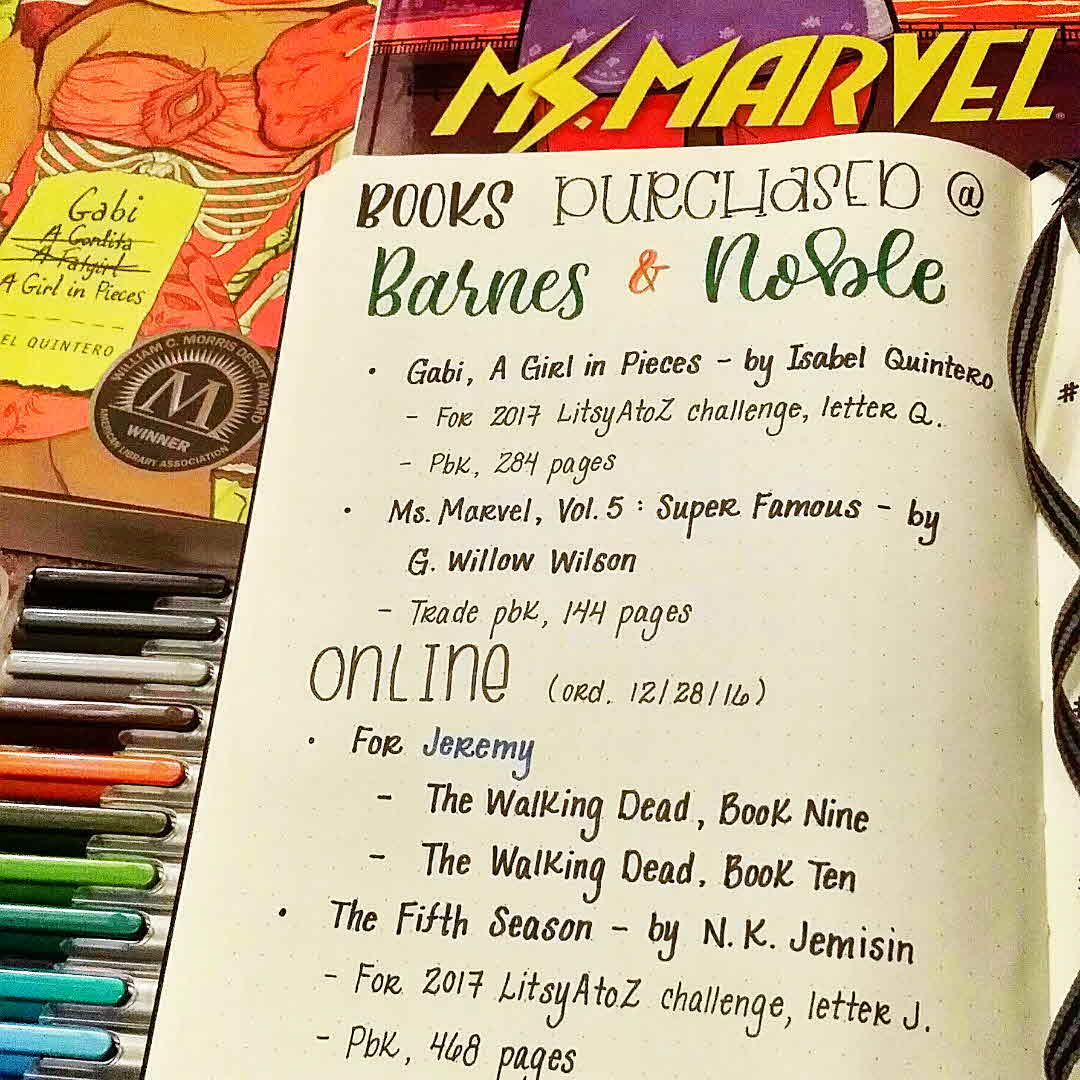 MS. MARVEL
Gabi
A Gordita
A Fatgirl
A Girl in Pieces
EL QUINTERO
WILLIAM C. MORRIS DEBUT AWARD
M
WINNER
AMERICAN LIBRARY ASSOCIATION
BOOKS PURCHASED @
Barnes & Noble
• Gabi, A Girl in Pieces - by Isabel Quintero
- For 2017 LitsyAtoZ challenge, letter Q.
- Pbk, 284 pages
• Ms. Marvel, Vol. 5 : Super Famous - by
G. Willow Wilson
- Trade pbk, 144 pages
ONLINE (ord. 12/28/16)
• For Jeremy
- The Walking Dead, Book Nine
- The Walking Dead, Book Ten
• The Fifth Season - by N. K. Jemisin
- For 2017 LitsyAtoZ challenge, letter J.
- Pbk, 468 pages
#